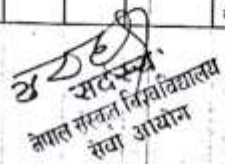 सदस्य
नेपाल संस्कृत विश्वविद्यालय
सेवा आयोग